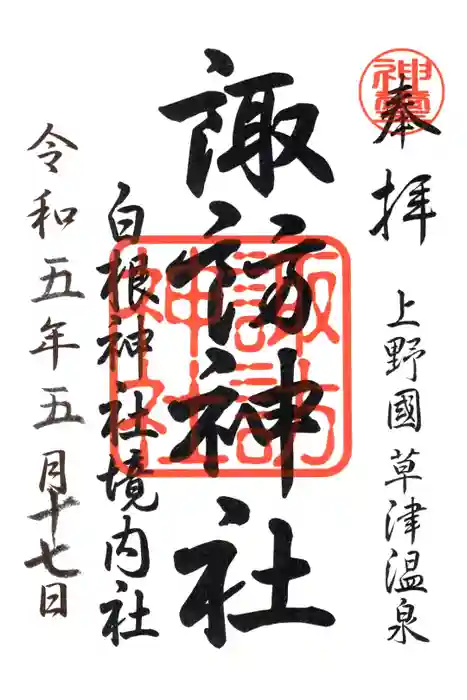 奉拝
上野國草津温泉
諏訪神社
諏訪神社
白根神社境内社
令和五年五月十七日